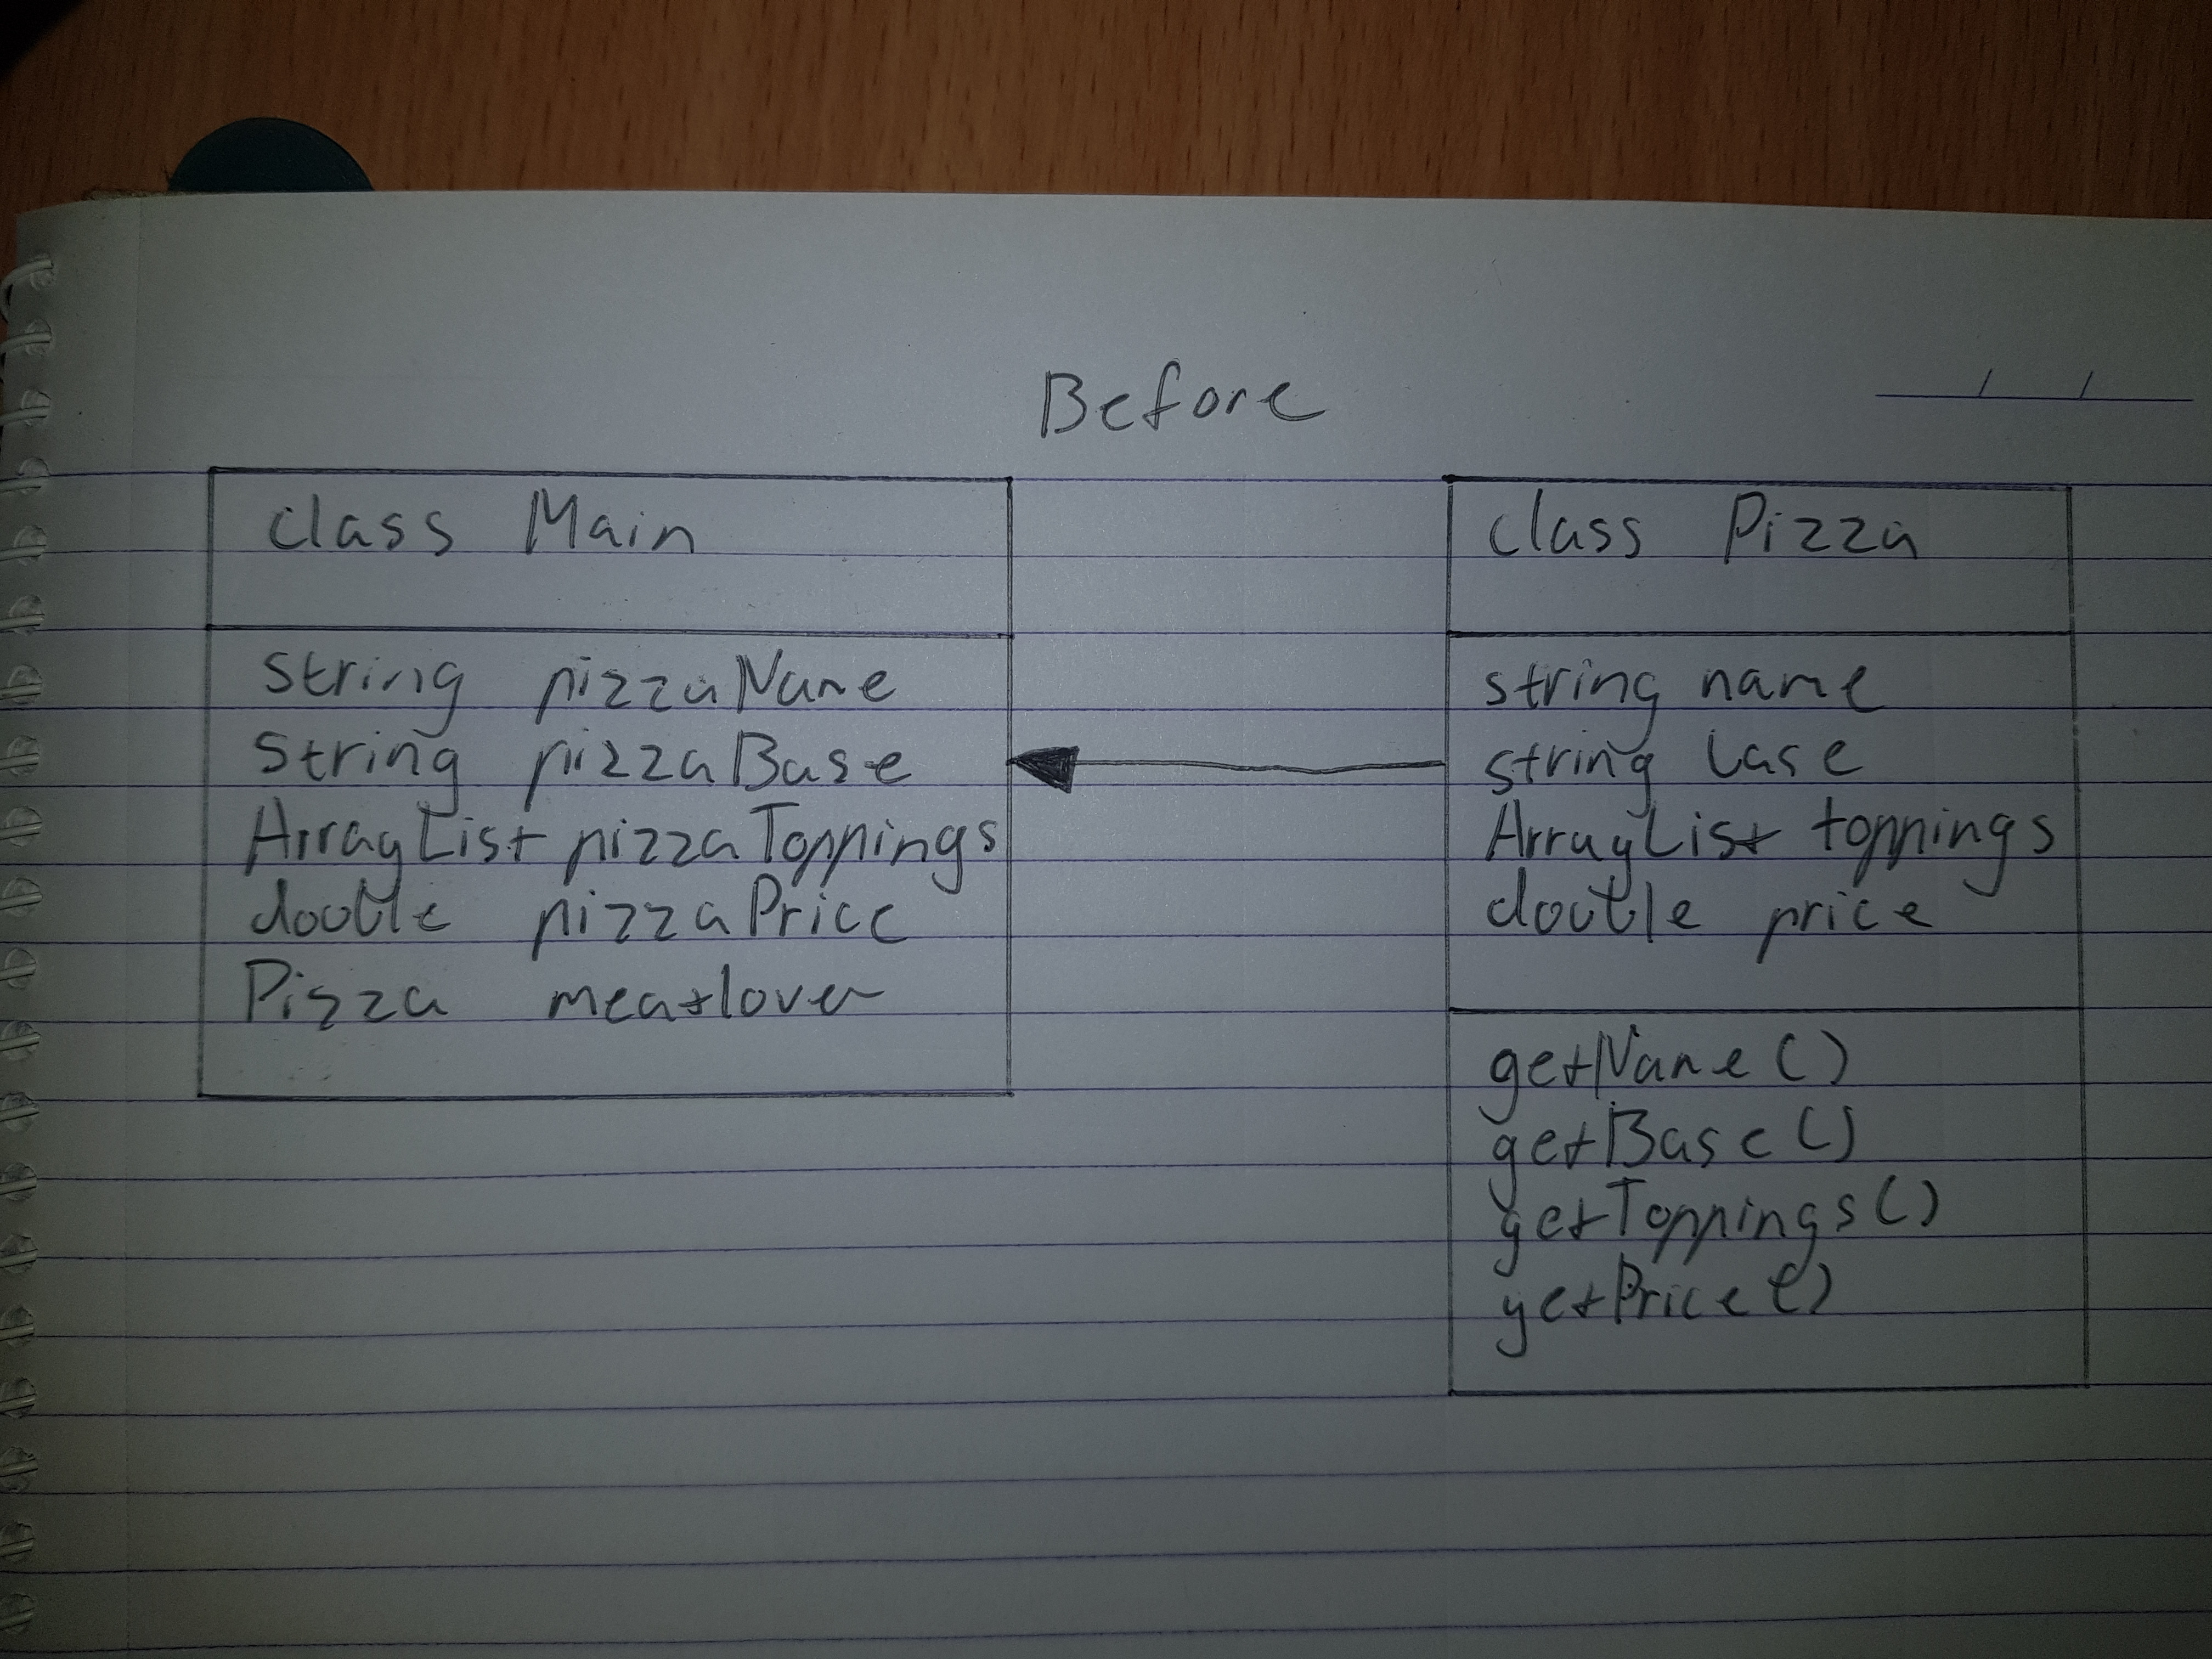 Before
class Main
String pizzaName
String pizzaBase
ArrayList pizzaToppings
double pizzaPrice
Pizza meatlover
class Pizza
string name
string base
ArrayList toppings
double price
getName()
getBase()
getToppings()
getPrice()